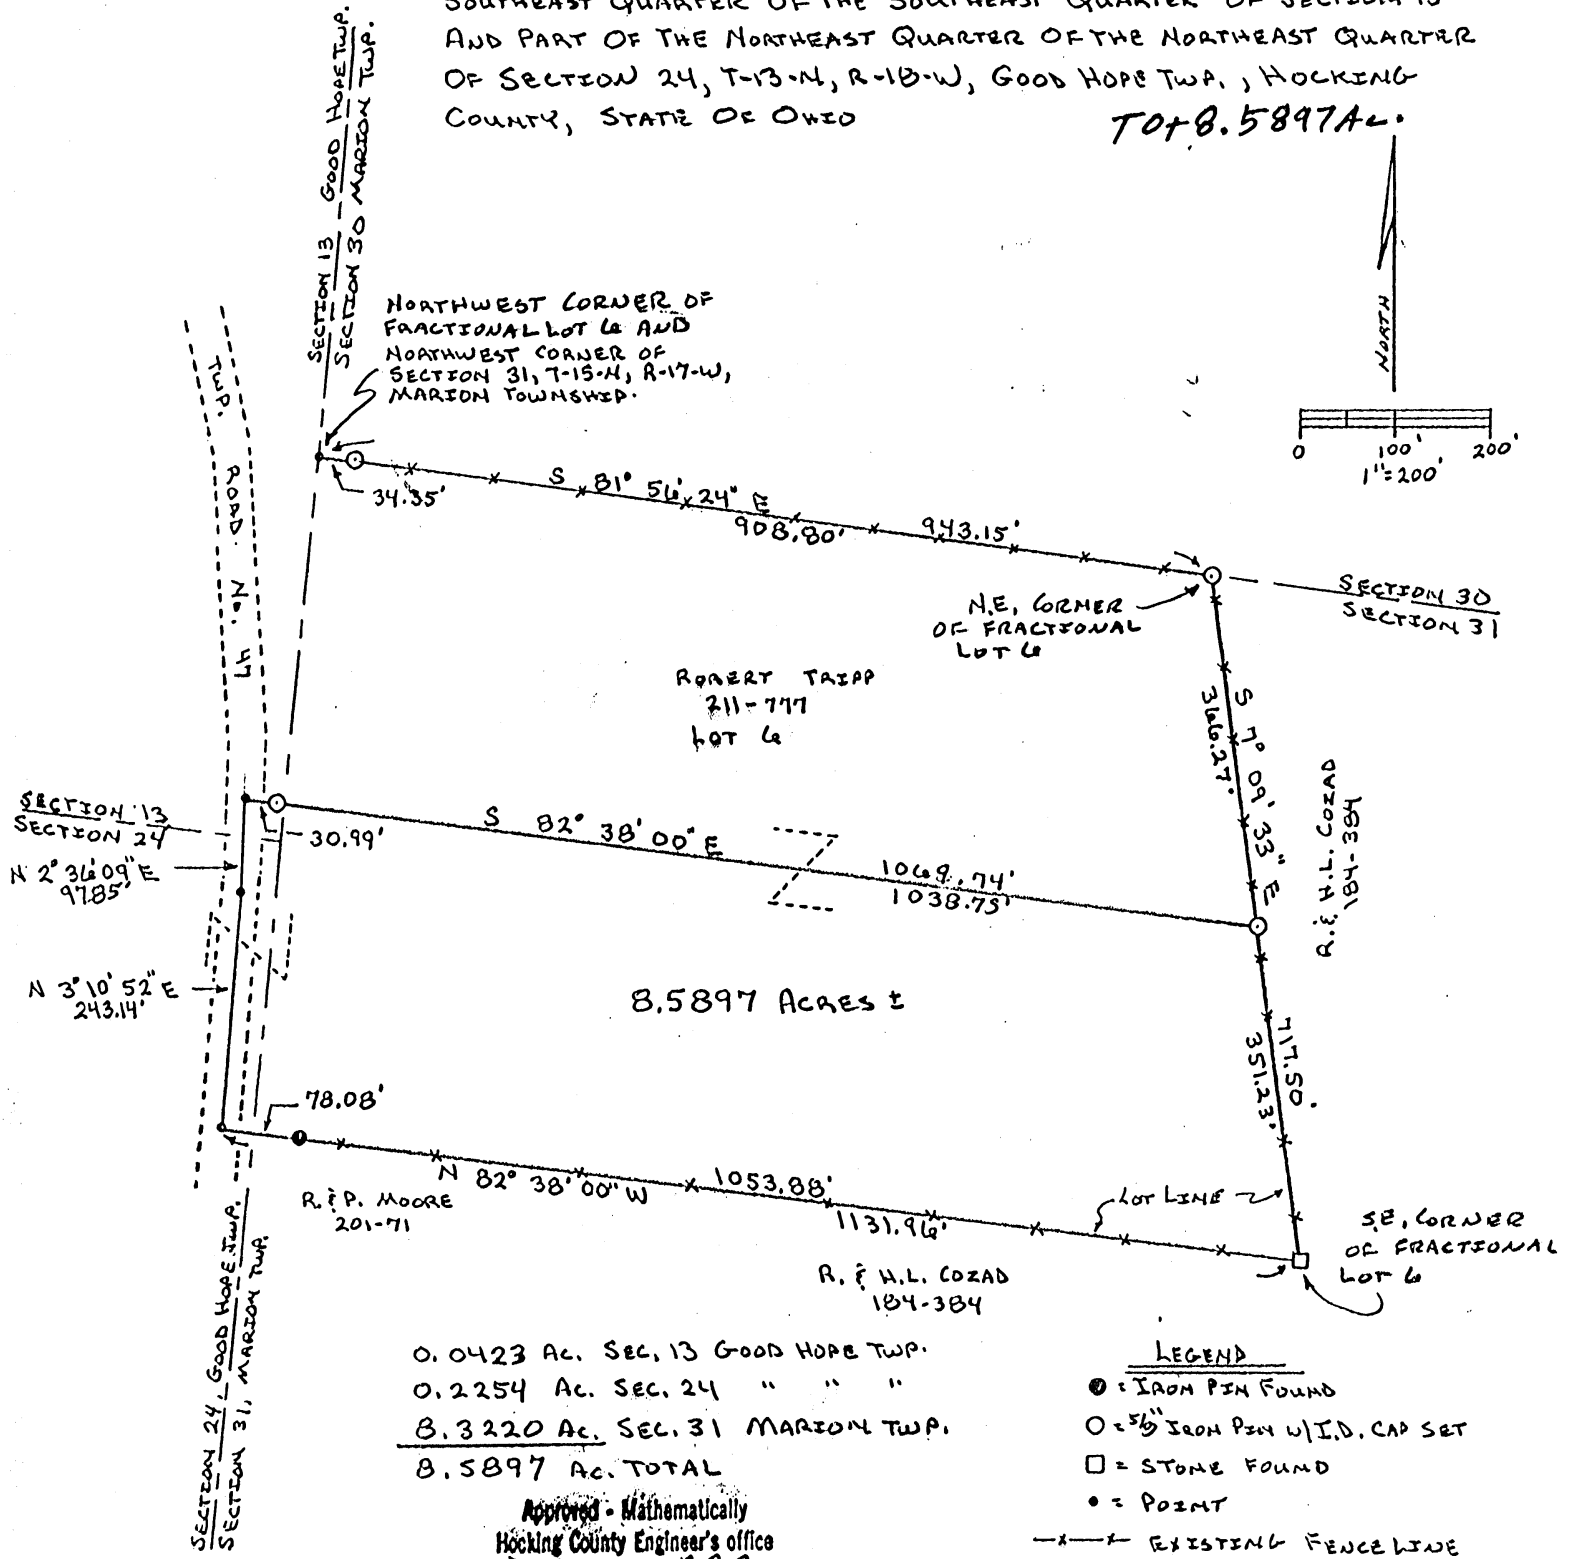 SOUTHEAST QUARTER OF THE SOUTHEAST QUARTER OF SECTION 13
AND PART OF THE NORTHEAST QUARTER OF THE NORTHEAST QUARTER
OF SECTION 24, T-13-N, R-18-W, GOOD HOPE TWP., HOCKING
COUNTY, STATE OF OHIO
TOT 8.5897 Ac.
SECTION 13 - GOOD HOPE TWP.
SECTION 30 MARION TWP.
NORTH
0 100' 200'
1"=200'
NORTHWEST CORNER OF
FRACTIONAL LOT 6 AND
NORTHWEST CORNER OF
SECTION 31, T-15-N, R-17-W,
MARION TOWNSHIP.
TWP. ROAD No. 41
34.35'
S 81° 56' 24" E
908.80' 943.15'
N.E. CORNER
OF FRACTIONAL
LOT 6
SECTION 30
SECTION 31
ROBERT TRIPP
211-777
LOT 6
S 7° 09' 33" E
366.27'
R. & H.L. COZAD
184-384
SECTION 13
SECTION 24
30.99'
S 82° 38' 00" E
1069.74'
1038.75'
N 2° 36' 09" E
97.85'
N 3° 10' 52" E
243.14'
8.5897 ACRES ±
717.50'
351.23'
78.08'
N 82° 38' 00" W 1053.88'
1131.96'
R. & P. MOORE
201-71
LOT LINE
S.E. CORNER
OF FRACTIONAL
LOT 6
R. & H.L. COZAD
184-384
SECTION 24, GOOD HOPE TWP.
SECTION 31, MARION TWP.
0.0423 AC. SEC. 13 GOOD HOPE TWP.
0.2254 AC. SEC. 24 " " "
8.3220 AC. SEC. 31 MARION TWP.
8.5897 AC. TOTAL
Approved - Mathematically
Hocking County Engineer's office
LEGEND
= IRON PIN FOUND
= 5/8" IRON PIN W/I.D. CAP SET
= STONE FOUND
= POINT
-x-x- EXISTING FENCELINE